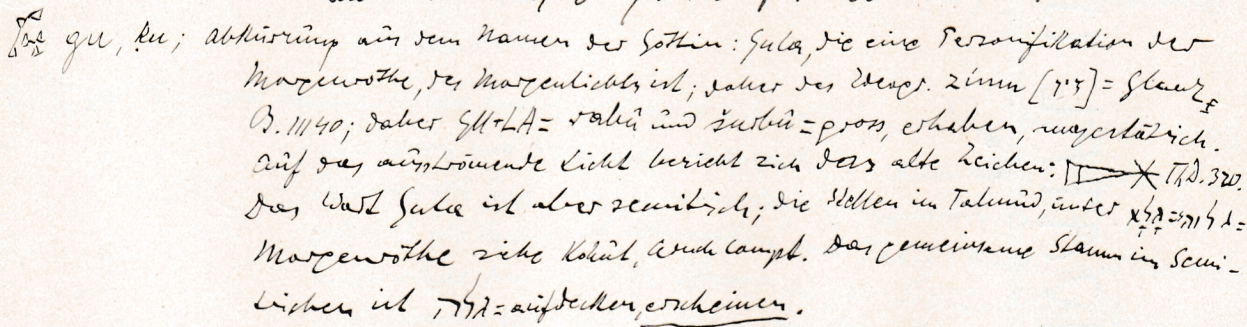 gu, ku; Abkürzung aus dem Namen der Göttin: Gula, die eine Personifikation der
Morgenröthe, des Morgenlichts ist; daher das Ideogr. zimu [זיו] = Glanz,
B. 11140; daher GU+LA = rabû und šurbû = gross, erhaben, majestätisch.
Auf das ausströmende Licht bezieht sich das alte Zeichen: Th.D. 320.
Das Wort Gula ist aber semitisch; die Stellen im Talmud, unser
Morgenröthe siehe Kohut, Aruch Compl. Das gemeinsame Stamm im Semi-
tischen ist גלה = aufdecken, erscheinen.